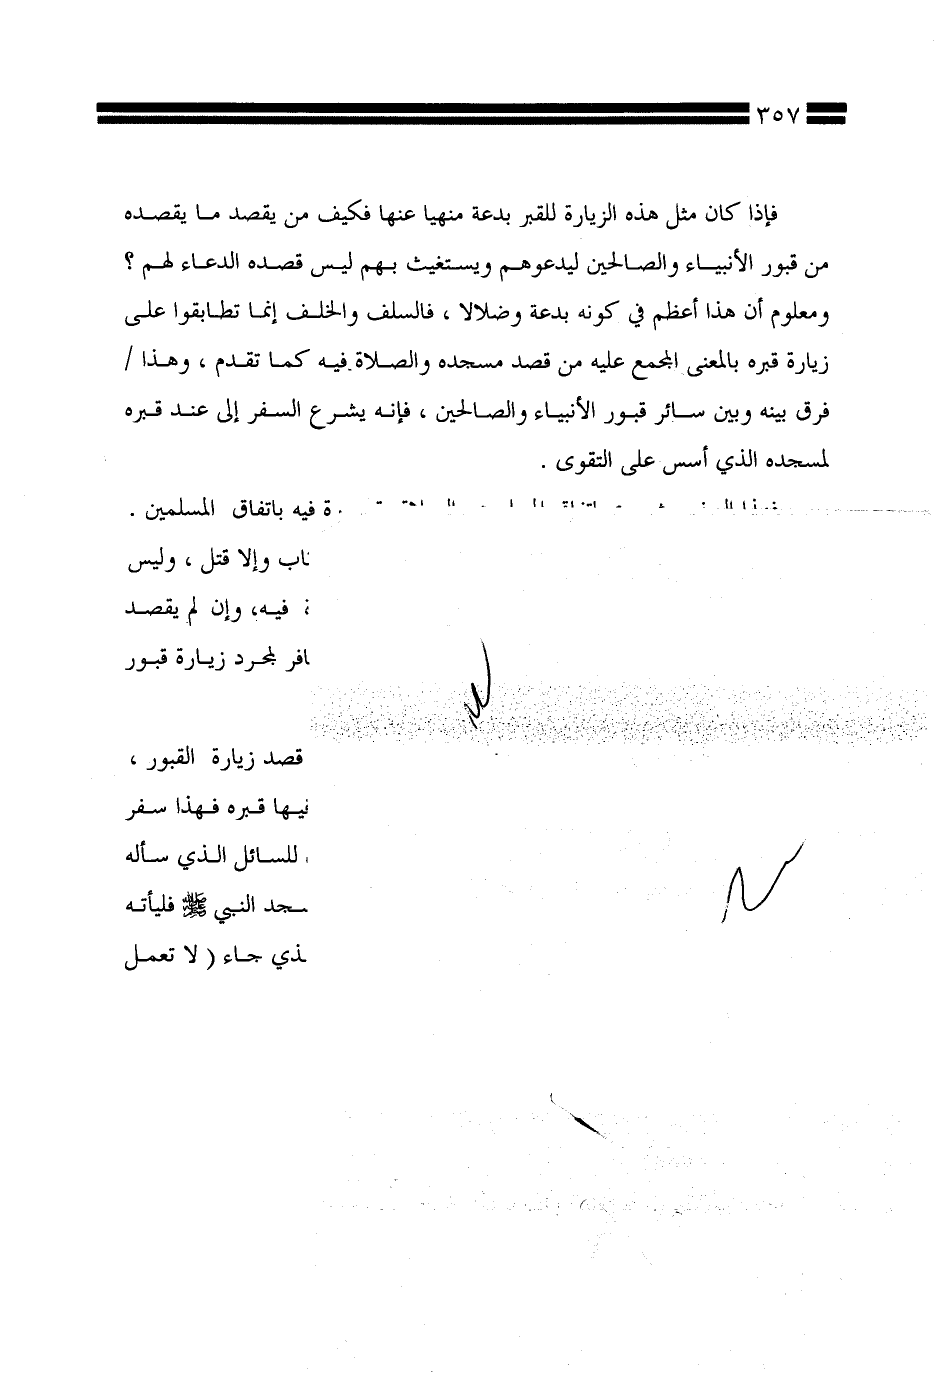 ٣٥٧
فإذا كان مثل هذه الزيارة للقبر بدعة منهيا عنها فكيف من يقصد ما يقصده
من قبور الأنبياء والصالحين ليدعوهم ويستغيث بهم ليس قصده الدعاء لهم ؟
ومعلوم أن هذا أعظم في كونه بدعة وضلالا ، فالسلف والخلف إنما تطابقوا على
زيارة قبره بالمعنى المجمع عليه من قصد مسجده والصلاة فيه كما تقدم ، وهذا /
فرق بينه وبين سائر قبور الأنبياء والصالحين ، فإنه يشرع السفر إلى عند قبره
لمسجده الذي أسس على التقوى .
فيه باتفاق المسلمين .
وإلا قتل ، وليس
فيه، وإن لم يقصد
لمجرد زيارة قبور
قصد زيارة القبور ،
قبره فهذا سفر
للسائل الذي سأله
النبي ﷺ فليأته
جاء ( لا تعمل